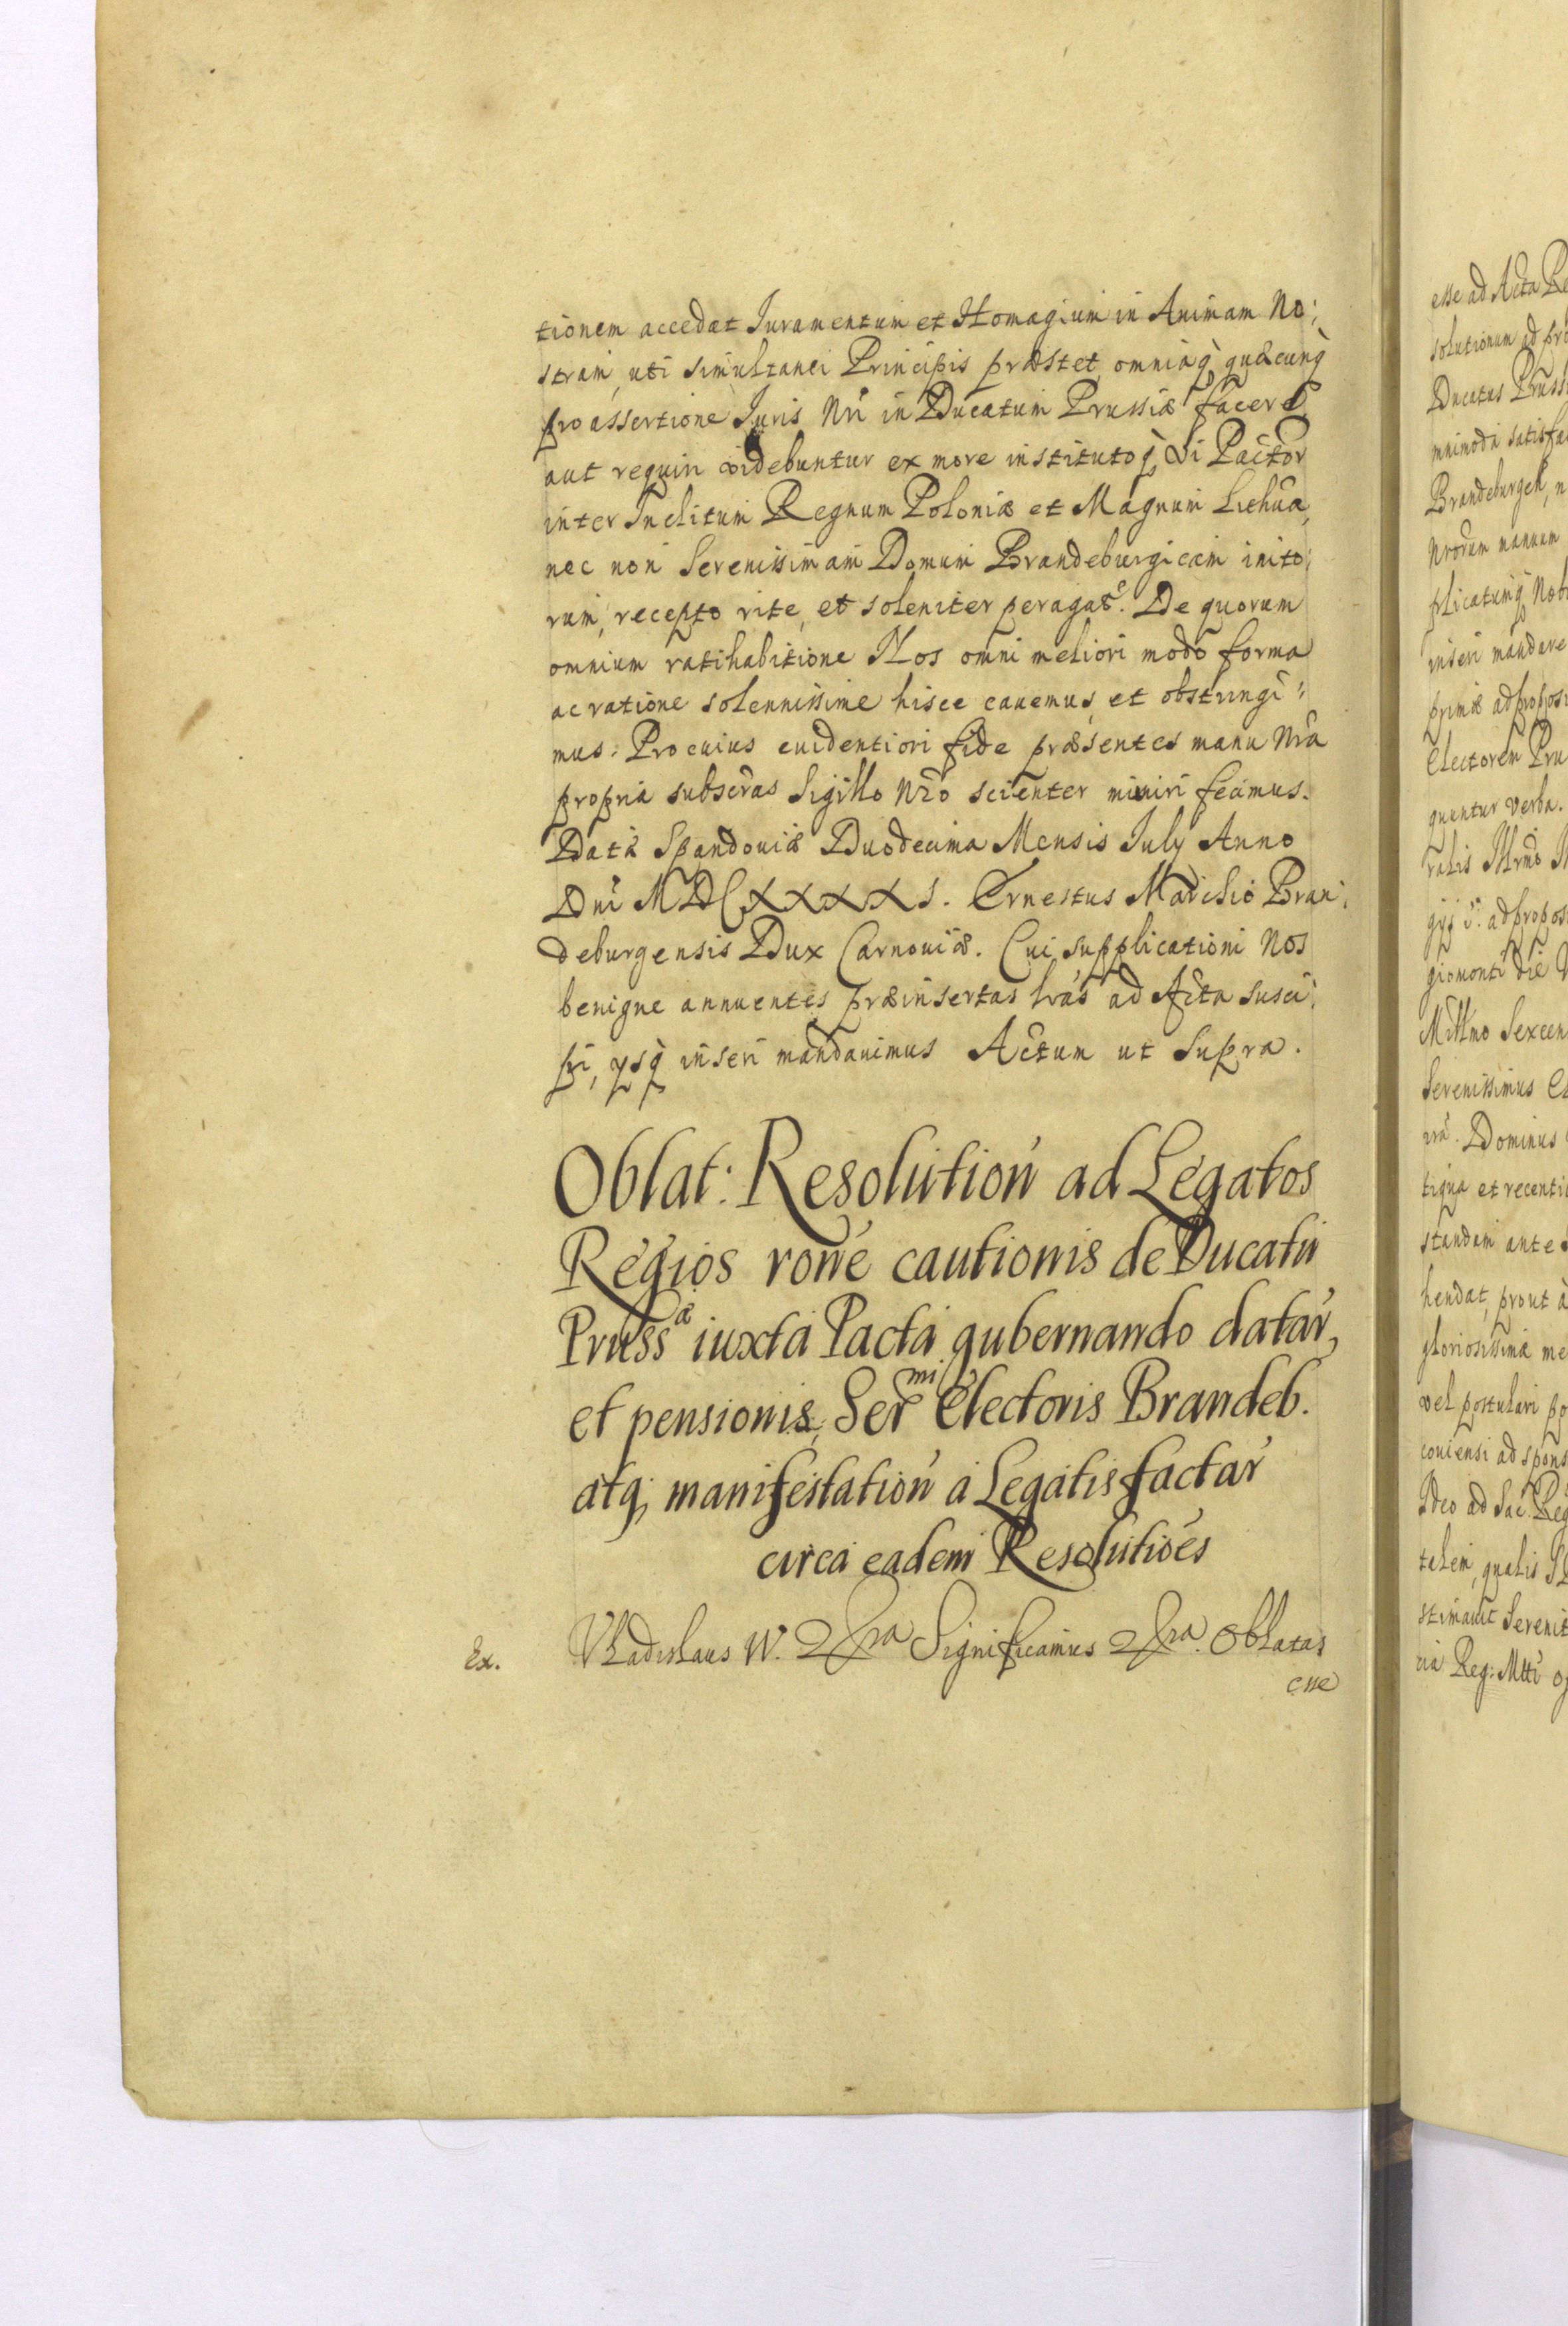 tionem accedat Iuramentum et Homagium in Animam No:
stram, uti simultanei Principis præstet, omniaq quæcunq
pro assertione Iuris Nri in Ducatum Prussiæ facere
aut requiri videbuntur ex more institutoq Pactor
inter Inclitum Regnum Poloniæ et Magnum Lithua
nec non Serenissimam Domum Brandeburgicam inito:
rum, recepto rite, et soleniter peragat. De quorum
omnium ratihabitione Nos omni meliori modo forma
ac ratione solennissime hisce cavemus et obstringi:
mus: Pro cuius evidentiori fide præsentes manu Nra
propria subscras Sigillo Nro scienter muniri fecimus.
Data Spandoviæ Duodecima Mensis July Anno
Dni MDCXXXXI. Ernestus Marchio Bran:
deburgensis Dux Carnoviæ. Cui supplicationi Nos
benigne annuentes præinsertas lras ad Acta susci:
pi, ysq inseri mandavimus Actum ut Supra.
Oblat: Resolution ad Legatos
Regios rone cautionis de Ducatu
Pruss^æ iuxta Pacta gubernando datar,
et pensionis, Ser^mi Electoris Brandeb.
atq, manifestation a Legatis factar
circa eadem Resolutioes
Ex. Vladislaus IV. Significamus Oblatas
esse
esse ad Acta
solutionum ad
Ducatus Pruss
mnimoda satisfa
Brandeburgen,
Nrorum manuum
plicatumq Nob
inseri mandare
primæ ad propos
Electorem Pru
quuntur verba.
ralis Illrmo
ad propos
giomonti die
Millmo Sexcen
Serenissimus
Dominus
tiqua et recenti
standam ante
hendat, prout
gloriosissimæ me
vel postulari
coviensi ad spons
Ideo ad Sac. Reg
talem, qualis
stimavit Serenit
Reg: Mtti